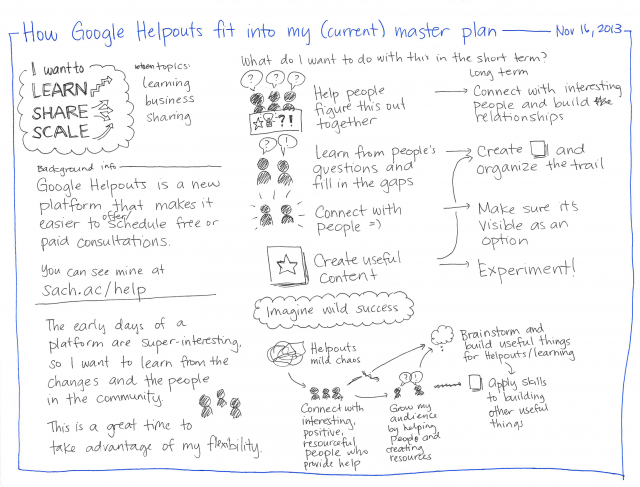 How Google Helpouts fit into my (current) master plan
Nov 16, 2013
I want to
LEARN
SHARE
SCALE
topics:
learning
business
sharing
Background info
Google Helpouts is a new
platform that makes it
easier to offer/schedule free or
paid consultations.
You can see mine at
sach.ac/help
The early days of a
platform are super-interesting,
so I want to learn from the
changes and the people
in the community.
This is a great time to
take advantage of my flexibility.
What do I want to do with this in the short term?
Long term
?
?
?
?!
Help people
figure this out
together
Connect with interesting
people and build
relationships
?
!
Learn from people's
questions and
fill in the gaps
Create and
organize the trail
Connect with
people =)
Make sure it's
visible as an
option
Create useful
content
Experiment!
Imagine wild success
Helpouts
mild chaos
Connect with
interesting,
positive,
resourceful
people who
provide help
?!
Grow my
audience
by helping
people and
creating
resources
Brainstorm and
build useful things
for Helpouts/learning
Apply skills
to building
other useful
things